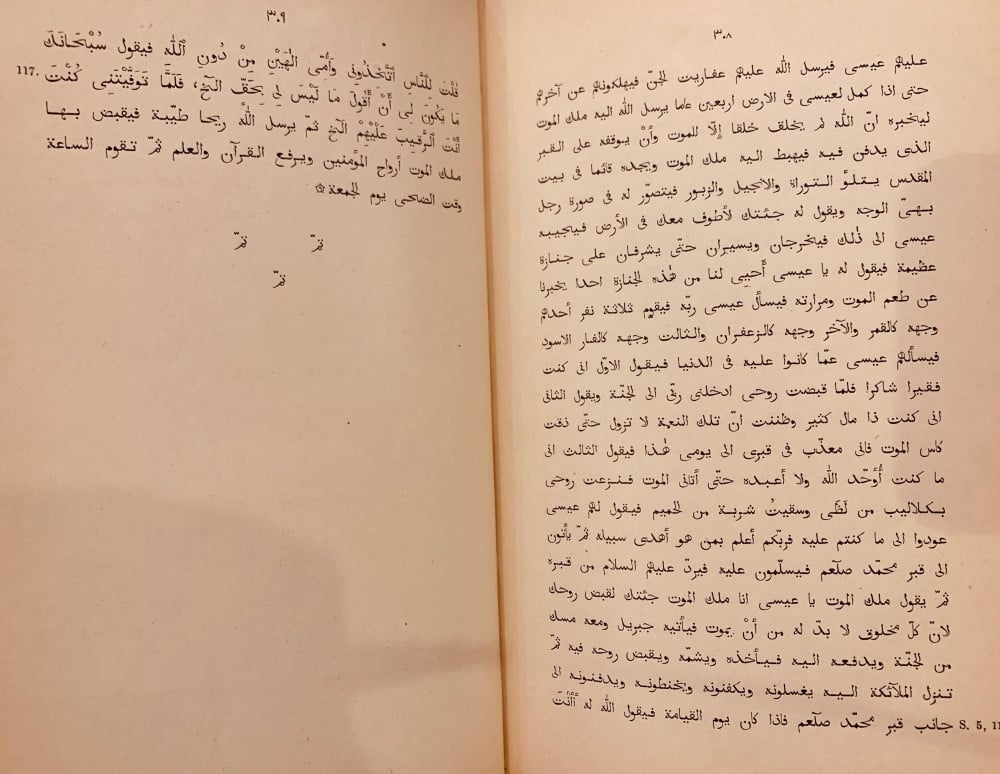 ٣٠٨
عليهم عيسى فيرسل الله عليهم عفاريت الجنّ فيهلكونهم عن آخرهم
حتى اذا كمل لعيسى فى الارض اربعين عاما يرسل الله اليه ملك الموت
ليخبره انّ الله لم يخلف خلقا إلّا للموت وأنْ يوقفه على القبر
الذى يدفن فيه فيهبط اليه ملك الموت ويجده قائما فى بيت
المقدس يتلؤ التوراة والانجيل والزبور فيتصوّر له فى صورة رجل
بهىّ الوجه ويقول له جئتك لأطوف معك فى الأرض فيجيبه
عيسى الى ذٰلك فيخرجان ويسيران حتّى يشرفان على جنازة
عظيمة فيقول له يا عيسى أَحيِى لنا من هٰذه الجنازة احدا يخبرنا
عن طعم الموت ومرارته فيسأل عيسى ربّه فيقوم ثلاثة نفر أحدهم
وجهه كالقمر والآخر وجهه كالزعفران والثالث وجهه كالقار الاسود
فيسألهم عيسى عمّا كانوا عليه فى الدنيا فيقول الاوّل انى كنت
فقيرا شاكرا فلمّا قبضت روحى ادخلنى ربّى الى الجنّة ويقول الثانى
انى كنت ذا مال كثير وظننت انّ تلك النعمة لا تزول حتّى ذقت
كاس الموت فانى معذّب فى قبرى الى يومى هٰذا فيقول الثالث انى
ما كنت أُوحّد الله ولا أعبده حتّى أتانى الموت فنزعت روحى
بكلاليب من لَظَى وسقيتُ شربة من الحميم فيقول لهم عيسى
عودوا الى ما كنتم عليه فربّكم أعلم بمن هو أهدى سبيله ثمّ يأتون
الى قبر محمّد صلّعم فيسلّمون عليه فيردّ عليهم السلام من قبره
ثمّ يقول ملك الموت يا عيسى انا ملك الموت جئتك لقبض روحك
لانّ كلّ مخلوق لا بدّ له من أنْ يموت فيأتيه جبريل ومعه مسك
من الجنّة ويدفعه اليه فيأخذه ويشمّه ويقبض روحه فيه ثمّ
تنزل الملآئكة اليه يغسلونه ويكفنونه ويحنطونه ويدفنونه الى
جانب قبر محمّد صلّعم فاذا كان يوم القيامة فيقول الله له أَأَنْتَ
S. 5, 11
٣٠٩
قُلْتَ لِلنَّاسِ ٱتَّخِذُونِى وَأُمِّى إِلٰهَيْنِ مِنْ دُونِ ٱللهِ فيقول سُبْحَانَكَ
117. مَا يَكُونُ لِى أَنْ أَقُولَ مَا لَيْسَ لِى بِحَقّ الخ، فَلَمَّا تَوَفَّيْتَنِى كُنْتَ
أَنْتَ ٱلرَّقِيبَ عَلَيْهِمْ الخ ثمّ يرسل الله ريحا طيّبة فيقبض بها
ملك الموت أرواح المؤمنين ويرفع القرآن والعلم ثمّ تقوم الساعة
وقت الضحى يوم الجمعة ۞
تمّ تمّ
تمّ